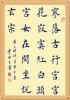 寥落古行宫宫
花寂寞紅白頭
宫女在閒坐說
玄宗